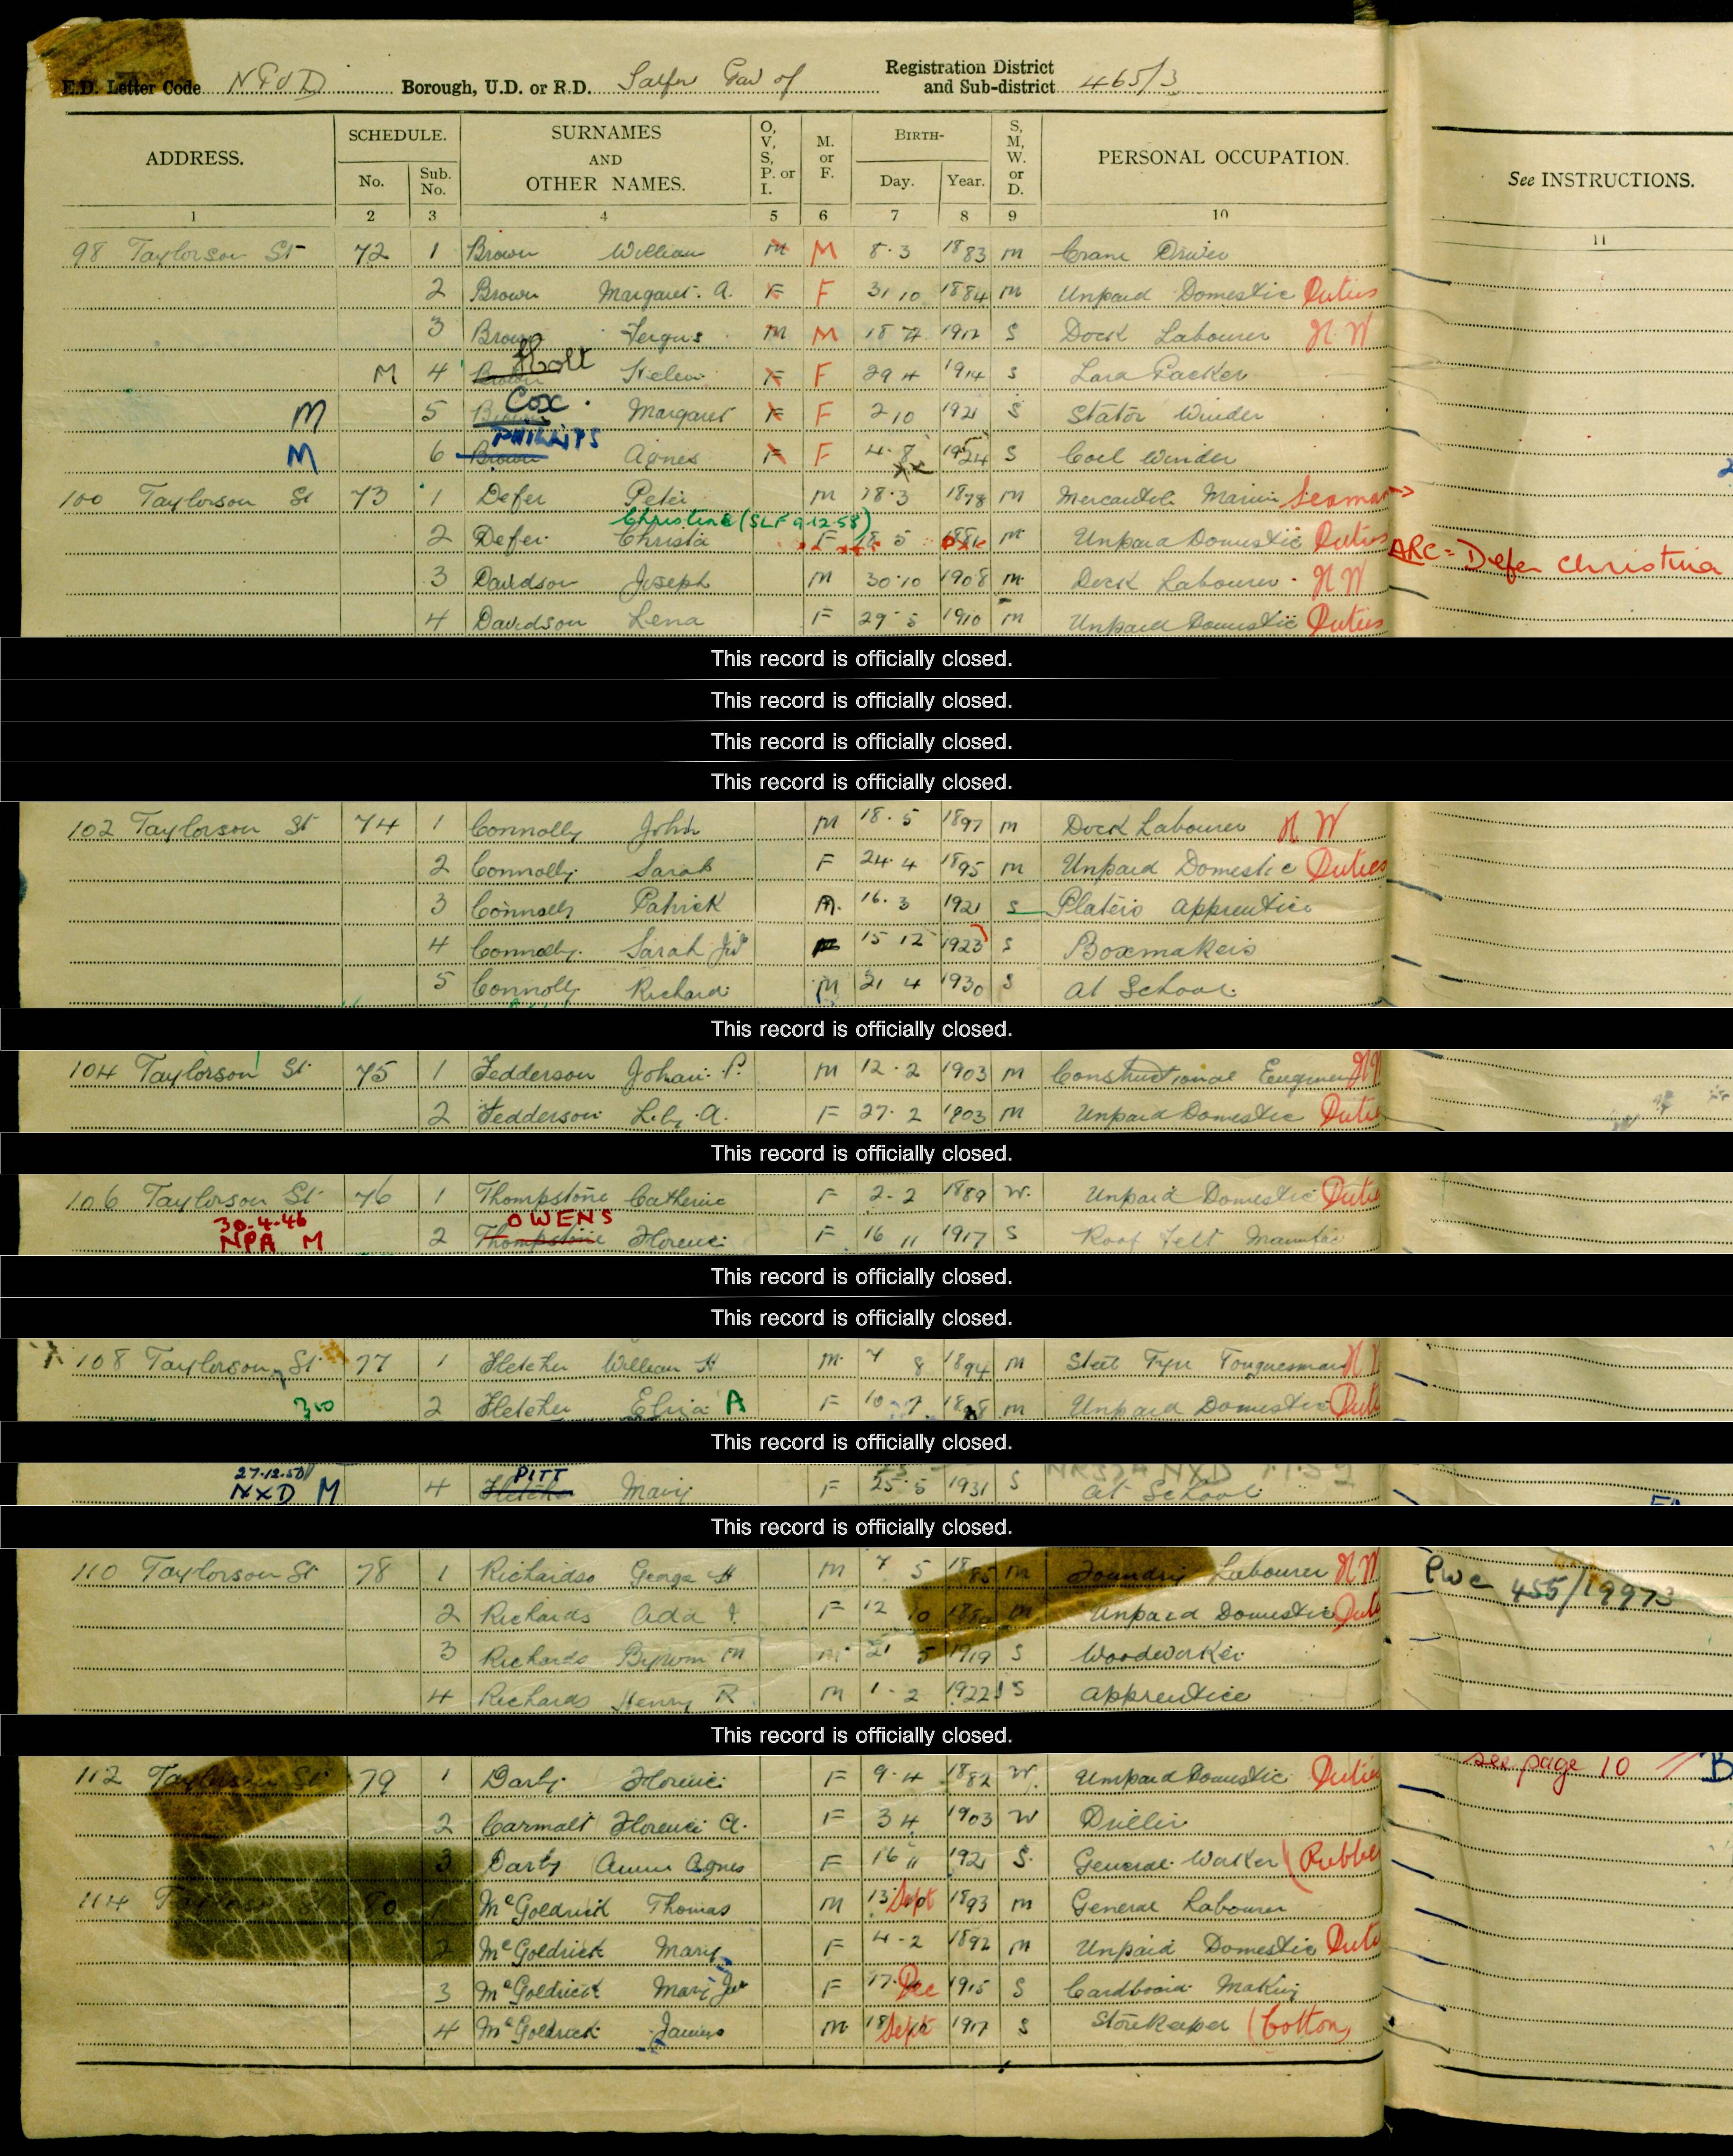 E.D. Letter Code Borough, U.D. or R.D. of Registration District and Sub-district 465/3
ADDRESS. SCHEDULE. SURNAMES AND OTHER NAMES. O, V, S, P. or I. M. or F. BIRTH- S, M, W. or D. PERSONAL OCCUPATION. See INSTRUCTIONS.
No. Sub. No. Day. Year.
1 2 3 4 5 6 7 8 9 10 11
98 Taylorson St 72 1 Brown William M M 8.3 1883 M Crane Driver
2 Brown Margaret. A. F F 31 10 1884 M Unpaid Domestic Duties
3 Brown Fergus M M 18 7 1912 S Dock Labourer H W
Holt
M 4 Brown Helen F F 29 4 1914 S Packer
Cox
M 5 Brown Margaret F F 2 10 1921 S Stator Winder
PHILLIPS
M 6 Brown Agnes F F 4.8 1924 S Coil Winder
100 Taylorson St 73 1 Defer Peter M 18.3 1878 M Mercantile Marine Seaman →
Christine (SLF 9.12.58)
2 Defer Christia F 18 5 M Unpaid Domestic Duties ARC = Defer Christina
3 Davidson Joseph M 30.10 1908 M Dock Labourer. H W
4 Davidson Lena F 29.5 1910 M Unpaid Domestic Duties
This record is officially closed.
This record is officially closed.
This record is officially closed.
This record is officially closed.
102 Taylorson St 74 1 Connolly John M 18.5 1897 M Dock Labourer H W
2 Connolly Sarah F 24.4 1895 M Unpaid Domestic Duties
3 Connolly Patrick M. 16.3 1921 S Platers Apprentice
4 Connolly. Sarah Jr 15 12 1923 S Boxmakers
5 Connolly Richard M 21 4 1930 S At School
This record is officially closed.
104 Taylorson St. 75 1 Fedderson Johan. P. M 12.2 1903 M Constructional Engineer
2 Fedderson Lily. A. F 27.2 1903 M Unpaid Domestic Dutie
This record is officially closed.
106 Taylorson St 76 1 Thompstone Catherine F 2.2 1889 W. Unpaid Domestic Dutie
30.4.46 OWENS
NPA M 2 Thompstone Florence F 16 11 1917 S Roof Felt Manufac
This record is officially closed.
This record is officially closed.
108 Taylorson St. 77 1 Fletcher William H M. 7 8 1894 M Steel Tyre Tonguesman
2 Fletcher Eliza A F 10 7 M Unpaid Domestic Duti
This record is officially closed.
27.12.50 PITT
NXD M 4 Fletcher Mary F 25.5 1931 S At School
This record is officially closed.
110 Taylorson St. 78 1 Richardso George H M 7 5 1885 M Foundry Labourer H W 455/19973
2 Richards Ada F 12 10 M Unpaid Domestic Duti
3 Richards M 21 5 1919 S Woodworker
4 Richards Henry R M 1.2 1922 S Apprentice
This record is officially closed.
see page 10
112 Taylorson St. 79 1 Darby Florence F 9.4 1882 W. Unpaid Domestic Dutie
2 Carmalt Florence A. F 3 4 1903 W Driller
3 Darby Annie Agnes F 16 11 1921 S. General Worker (Rubbe
114 80 1 McGoldrick Thomas M 13 Sept 1893 M General Labourer
2 McGoldrick Mary F 4.2 1892 M Unpaid Domestic Duti
3 McGoldrick Mary Jr F 17. Dec 1915 S Cardboard Making
4 McGoldrick James M 18 Sept 1917 S Storekeeper (Cotton)